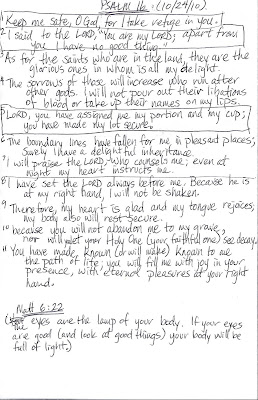 PSALM 16. (10/24/10)
1 Keep me safe, O God, for I take refuge in you.
2 I said to the LORD, "You are my LORD; apart from
you I have no good thing."
3 As for the saints who are in the land, they are the
glorious ones in whom is all my delight.
4 The sorrows of those will increase who run after
other gods. I will not pour out their libations
of blood or take up their names on my lips.
5 LORD, you have assigned me my portion and my cup;
you have made my lot secure.
6 The boundary lines have fallen for me in pleasant places;
surely I have a delightful inheritance.
7 I will praise the LORD, who counsels me; even at
night my heart instructs me.
8 I have set the LORD always before me. Because he is
at my right hand, I will not be shaken.
9 Therefore, my heart is glad and my tongue rejoices;
my body also will rest secure.
10 because you will not abandon me to my grave,
nor will you let your Holy One (your faithful one) see decay.
11 You have made, known (or will make) known to me
the path of life; you will fill me with joy in your
presence, with eternal pleasures at your right
hand.
Matt 6:22
The eyes are the lamp of your body. If your eyes
are good (and look at good things) your body will be
full of light)